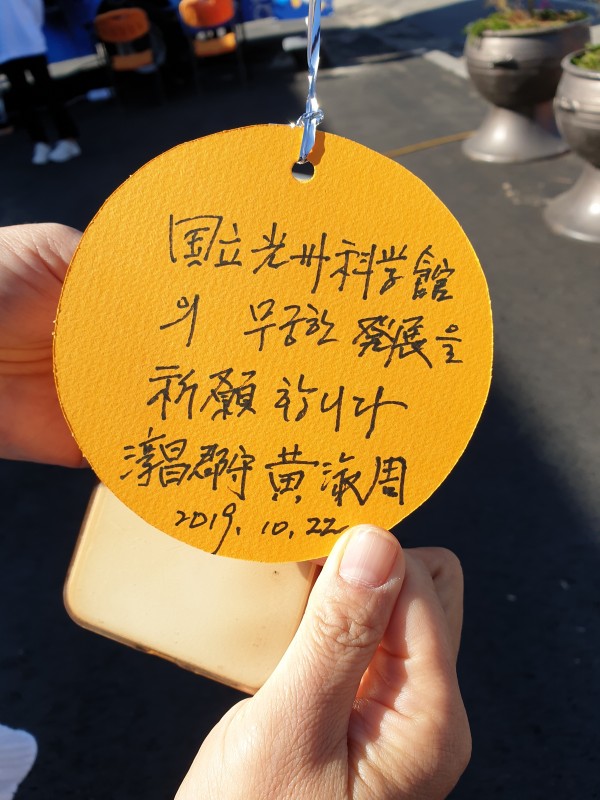 国立光州科学館
의 무궁한 發展을
祈願 합니다
淳昌郡守 黄淑周
2019. 10. 22